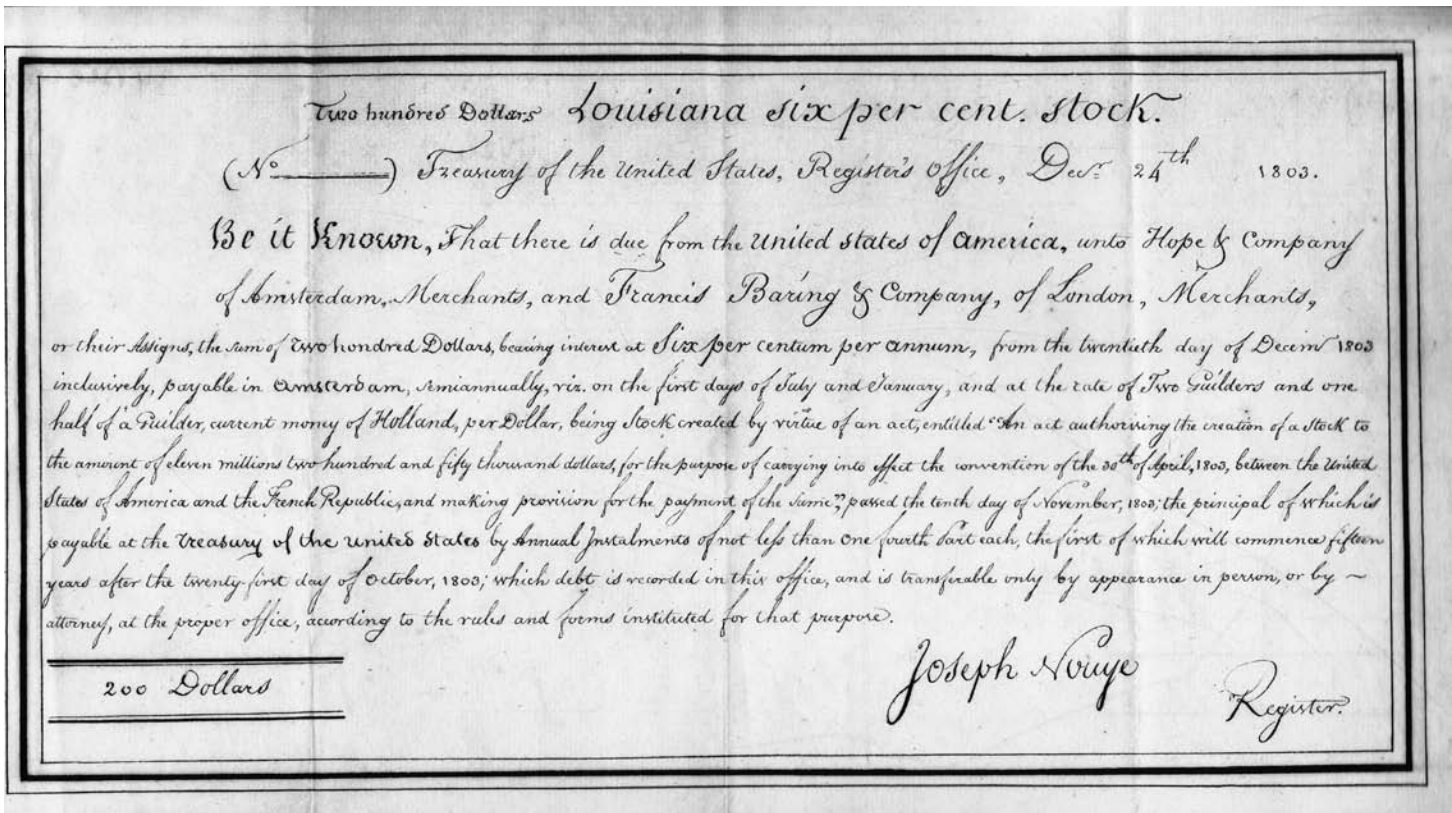 Two hundred Dollars Louisiana six per cent. stock.
(No ) Treasury of the United States, Register's Office, Decr. 24th 1803.
Be it Known, That there is due from the United States of America, unto Hope & Company
of Amsterdam, Merchants, and Francis Baring & Company, of London, Merchants,
or their Assigns, the sum of Two hondred Dollars, bearing interest at Six per centum per annum, from the twentieth day of Decemr 1803
inclusively, payable in Amsterdam, semiannually, viz. on the first days of July and January, and at the rate of Two Guilders and one
half of a Guilder, current money of Holland, per Dollar, being Stock created by virtue of an act, entitled "An act authorising the creation of a Stock to
the amount of eleven millions two hundred and fifty thousand dollars, for the purpose of carrying into effect the convention of the 30th of April, 1803, between the United
States of America and the French Republic, and making provision for the payment of the same", passed the tenth day of November, 1803; the principal of which is
payable at the Treasury of the United States by Annual Instalments of not less than One fourth Part each, the first of which will commence fifteen
years after the twenty-first day of October, 1803; which debt is recorded in this office, and is transferable only by appearance in person, or by ~
attorney, at the proper office, according to the rules and forms instituted for that purpose.
Joseph Nouye
200 Dollars
Register.